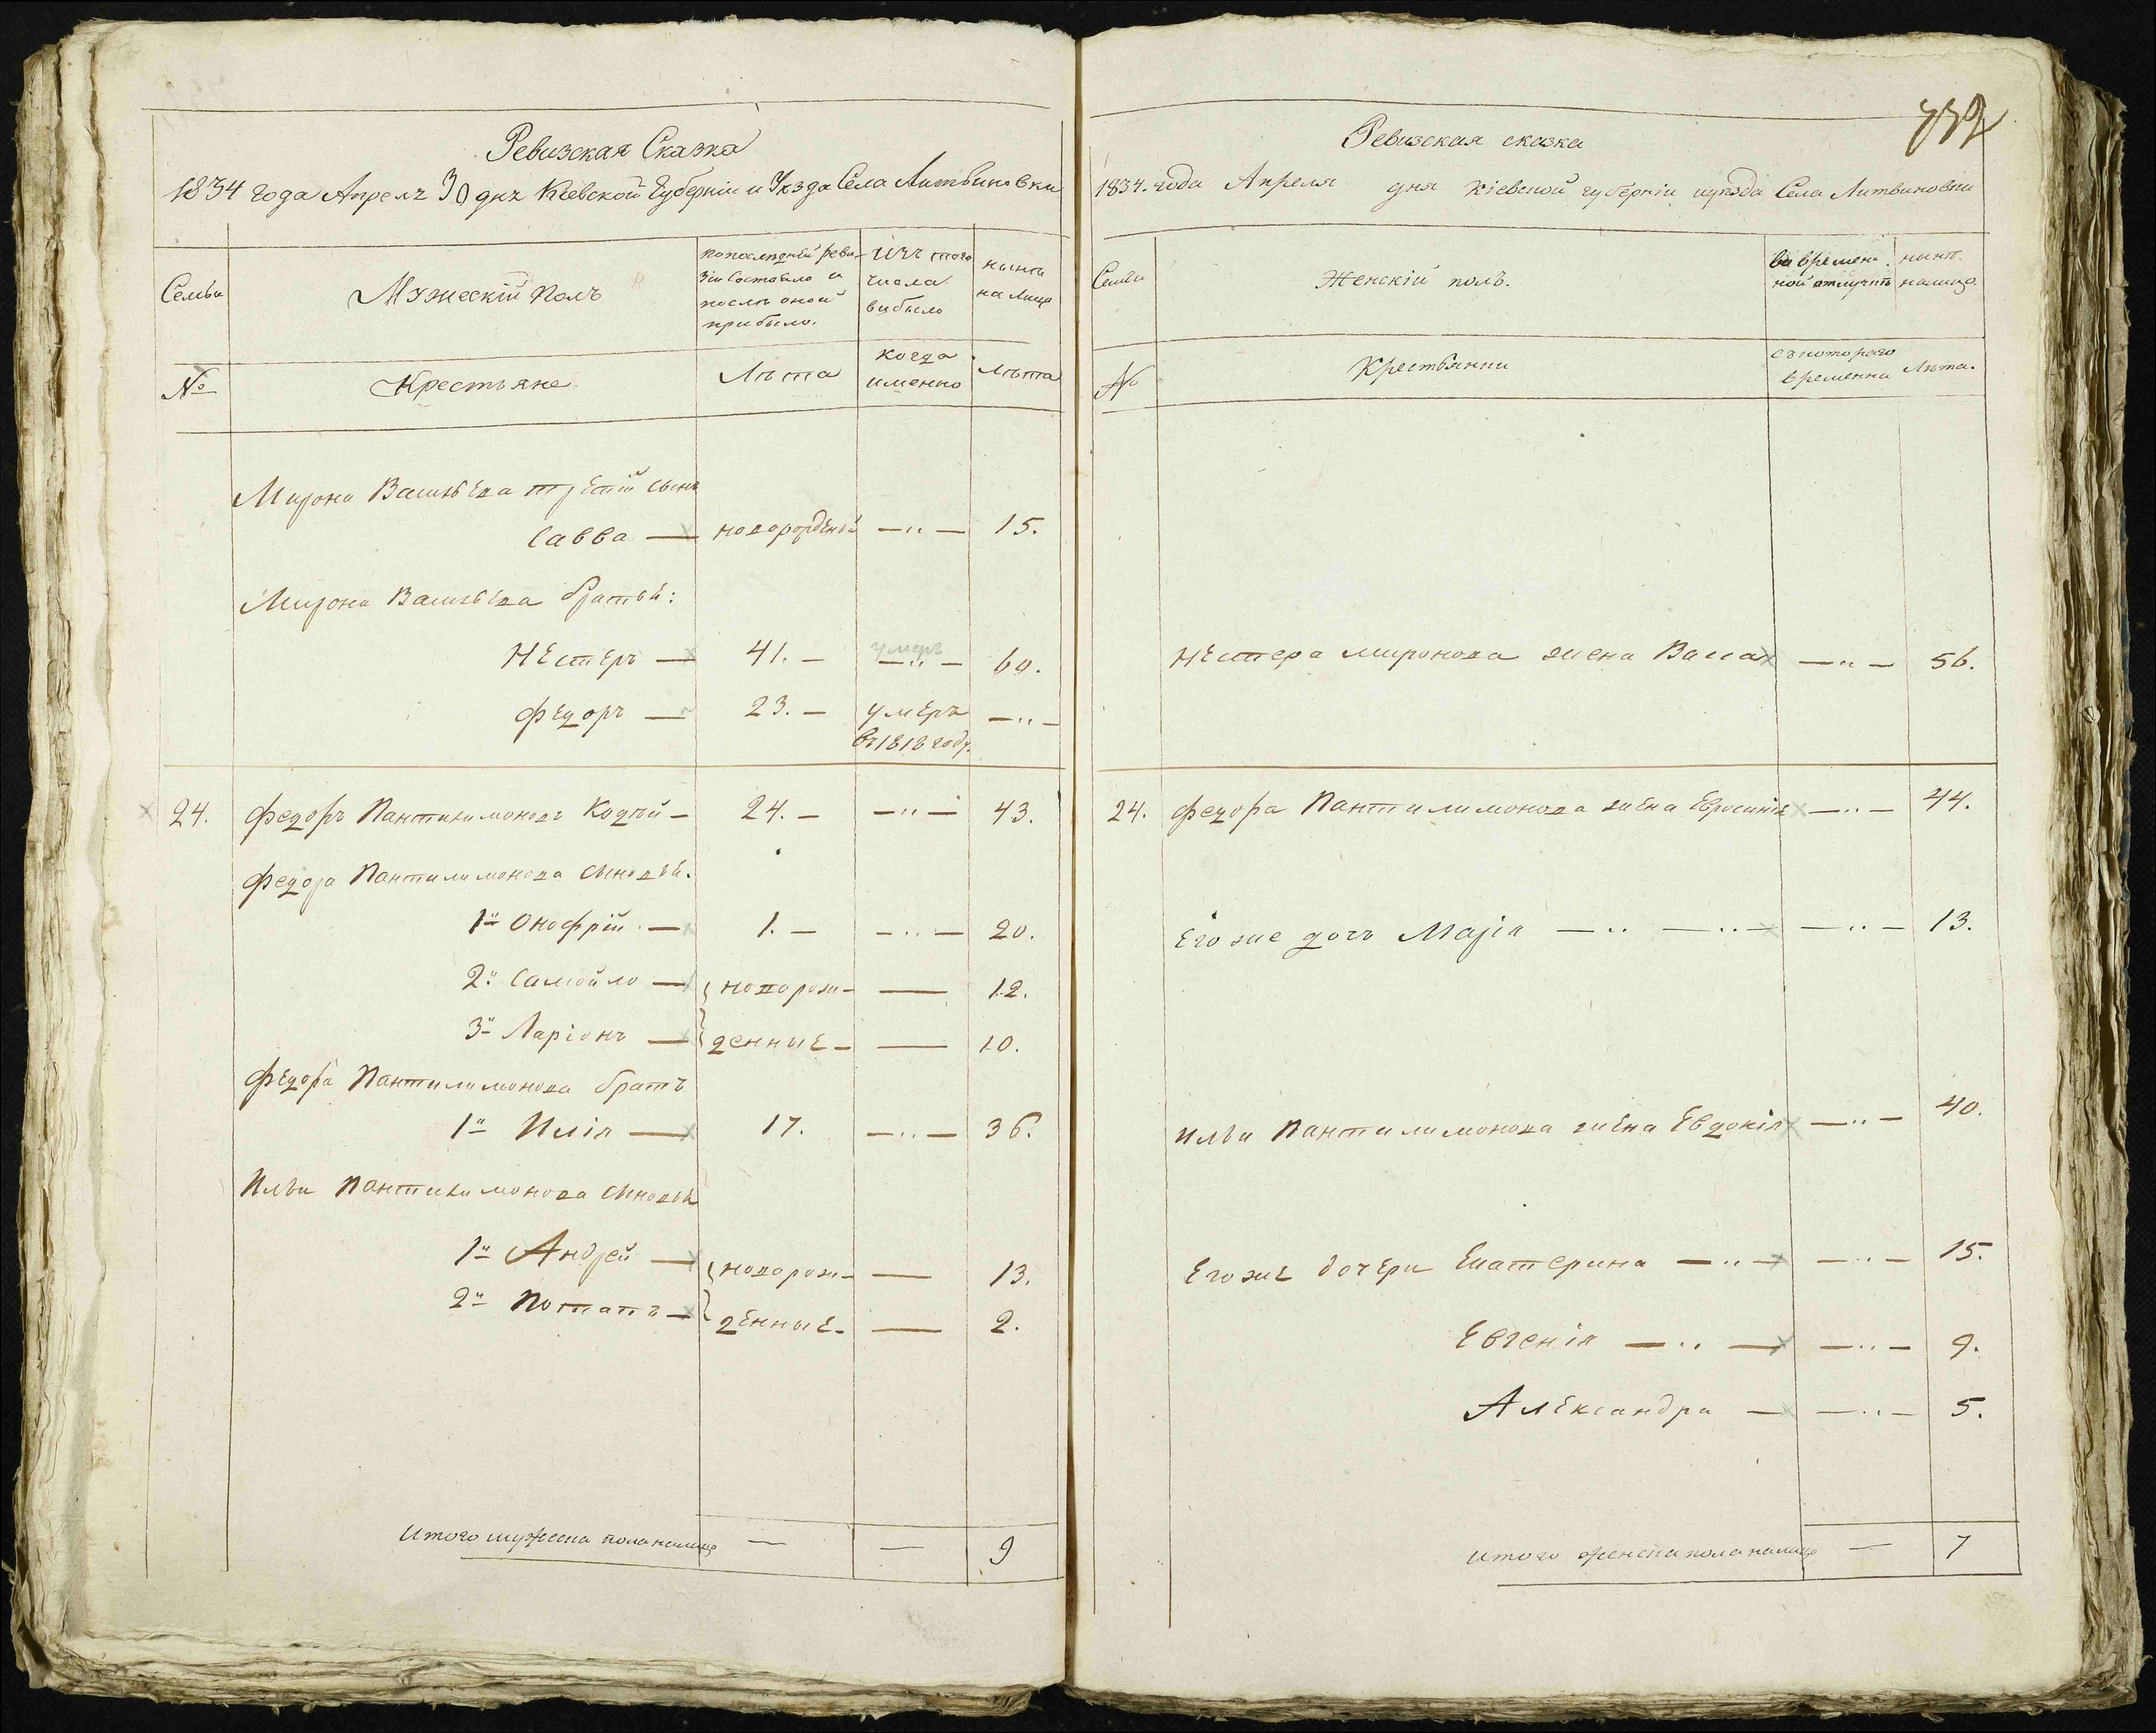 Ревизская Сказка
1834 года Апреля 30 дня Кіевской Губерніи и Уѣзда Села Литвиновки
Семьи
Мужескій Полъ
по последнѣй реви-
зіи Состояло и
послѣ оной
прибыло.
Изъ того
числа
выбыло
нынѣ
на лицо
№
Крестьяне
Лѣта
когда
именно
Лѣта
Мирона Васильева третій сынъ
Савва — новорожденой —"— 15.
Мирона Васильева братьи:
Нестеръ — 41. — умеръ —"— 60.
Федоръ — 23. — умеръ —"—
въ 1818 году.
24. Федоръ Пантилимоновъ — 24. — —"— 43.
Федора Пантилимонова сыновьи.
1й Онофрій — 1. — —"— 20.
2й Самойло — новорож- — 12.
3й Ларіонъ — денные — — 10.
Федора Пантилимонова братъ
1й Илія — 17. —"— 36.
Ильи Пантилимонова сыновьи
1й Андрей — новорож- — 13.
2й Потапъ — денные — — 2.
Итого мужеска пола налицо — — 9
Ревизская сказка
1834. года Апреля дня Кіевской губерніи и уезда Села Литвиновки
Семьи
Женскій полъ.
Во времен-
ной отлучкѣ
нынѣ
налицо
№
Крестьянки
съ котораго
временни
Лѣта.
Нестера Миронова жена Васса —"— 56.
24. Федора Пантилимонова жена Евросинія —"— 44.
Его же дочь Марія —"— —"— —"— 13.
Ильи Пантилимонова жена Евдокія —"— 40.
Его же дочери Екатерина —"— —"— 15.
Евгенія —"— —"— 9.
Александра — —"— 5.
Итого женска пола налицо — 7